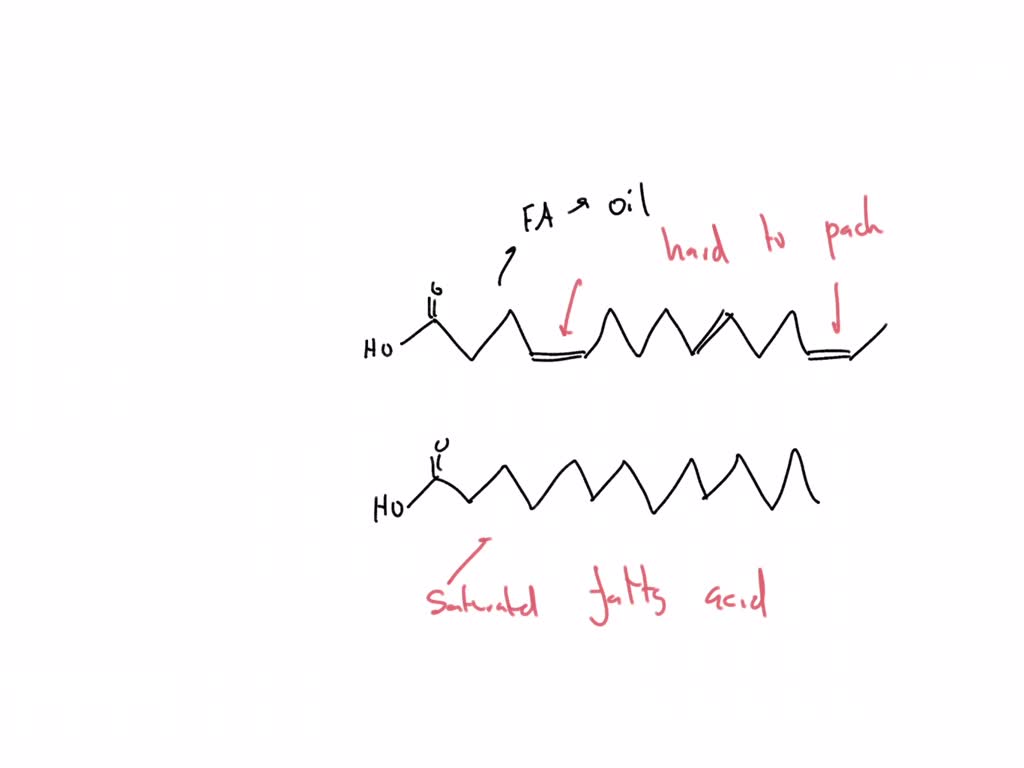 FA → oil
hard to pack
O
HO
O
HO
Saturated fatty acid